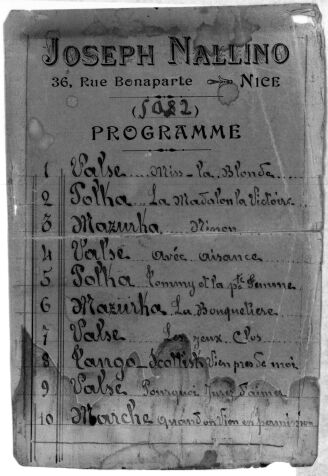 JOSEPH NALLINO
36, Rue Bonaparte NICE
(5082)
PROGRAMME
1 Valse Miss-la Blonde
2 Polka La Madelon la Victoire
3 Mazurka Ninon
4 Valse avec aisance
5 Polka Tommy et la pte femme
6 Mazurka La Bouquetiere
7 Valse Les yeux Clos
8 Tango Scottish Vien pres de moi
9 Valse Pourquoi d'aimer
10 Marche quand on vien en permission